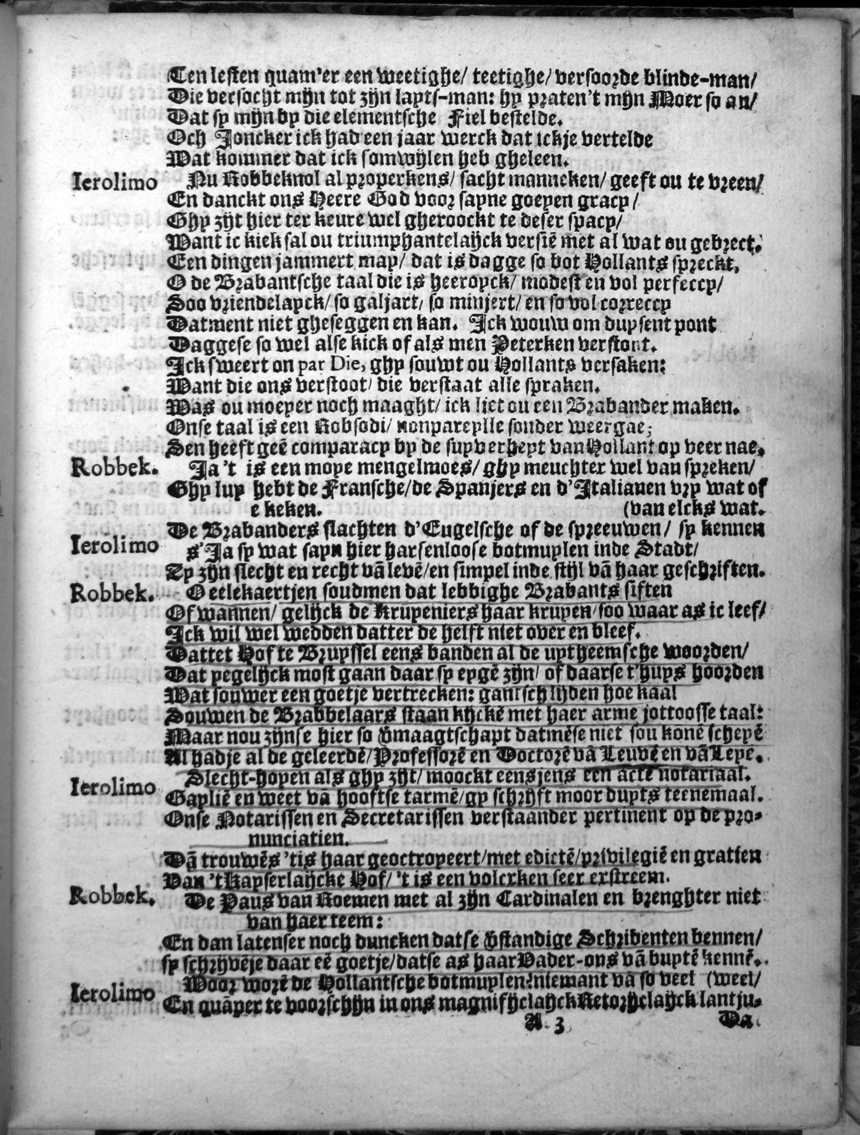 Ten lesten quam'er een weetighe/ teetighe/ versoorde blinde-man/
Die versocht mijn tot zijn lapts-man: hy praten't mijn Moer so an/
Dat sy mijn by die elementsche Fiel bestelde.
Och Joncker ick had een jaar werck dat ickje vertelde
Wat kommer dat ick somwylen heb gheleen.
Ierolimo Nu Robbeknol al properkens/ sacht manneken/ geeft ou te vreen/
En danckt ons Heere God voor sayne goeyen gracy/
Ghy zijt hier ter keure wel gheroockt te deser spacy/
Want ic kiek sal ou triumphantelayck versiē met al wat ou gebrect.
Een dingen jammert may/ dat is dagge so bot Hollants spreckt,
O de Brabantsche taal die is heeroyck/ modest en vol perfeccy/
Soo vriendelayck/ so galjart/ so minjert/ en so vol correccy
Datment niet gheseggen en kan. Ick wouw om duysent pont
Daggese so wel alse kick of als men Peterken verstont.
Ick sweert on par Die, ghy souwt ou Hollants versaken:
Want die ons verstoot/ die verstaat alle spraken.
Was ou moeyer noch maaght/ ick liet ou een Brabander maken.
Onse taal is een Robsodi/ nonpareylle sonder weergae;
Sen heeft geē comparacy by de supverheyt van Hollant op veer nae.
Robbek. Ja't is een moye mengelmoes/ ghy meuchter wel van spreken/
Ghy luy hebt de Fransche/ de Spanjers en d'Italianen vry wat of
e keken. (van elcks wat.
De Brabanders slachten d'Engelsche of de spreeuwen/ sy kennen
Ierolimo s'Ja sy wat sayn hier harsenloose botmuylen inde Stadt/
Zy zijn slecht en recht vā levē/ en simpel inde stijl vā haar geschriften.
Robbek. O eelekaertjen soudmen dat lebbighe Brabants siften
Of wannen/ gelijck de Krupeniers haar krupen/ soo waar as ic leef/
Ick wil wel wedden datter de helft niet over en bleef.
Dattet Hof te Bruyssel eens banden al de uytheemsche woorden/
Dat yegelijck most gaan daar sy eygē zijn/ of daarse t'huys hoorden
Wat souwer een goetje vertrecken: gantsch lijden hoe kaal
Souwen de Brabbelaars staan kijckē met haer arme jottoosse taal:
Maar nou zijnse hier so v̄maagtschapt datmēse niet sou konē schepē
Al hadje al de geleerdē/ Professorē en Doctorē vā Leuvē en vā Leyē.
Ierolimo Slecht-hopen als ghy zyt/ moockt eensjens een acte notariaal.
Gaplië en weet vā hooftse tarmē/ gy schrijft moor duyts teenemaal.
Onse Notarissen en Secretarissen verstaander pertinent op de pro-
nunciatien.
Dā trouwēs 'tis haar geoctroyeert/ met edictē/ privilegiē en gratien
Van 't Kayserlaijcke Hof/ 't is een volcxken seer erstreem.
Robbek. De Paus van Roemen met al zijn Cardinalen en brenghter niet
van haer teem:
En dan latenser noch duncken datse v̄standige Schribenten bennen/
sy schrijvēje daar eē goetje/ datse as haar Vader-ons vā buytē kennē.
Ierolimo Woor worē de Hollantsche botmuylen? niemant vā so veel (weel/
En quāper te voorschijn in ons magnifijclayck Retorijclayck lantju-
A 3 Da